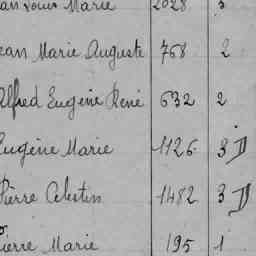 Marie 2028 3
ean Marie Auguste 768 2
Alfred Eugène René 632 2
Eugène Marie 1126 3 D
Pierre Célestin 1482 3 D
ierre Marie 195 1